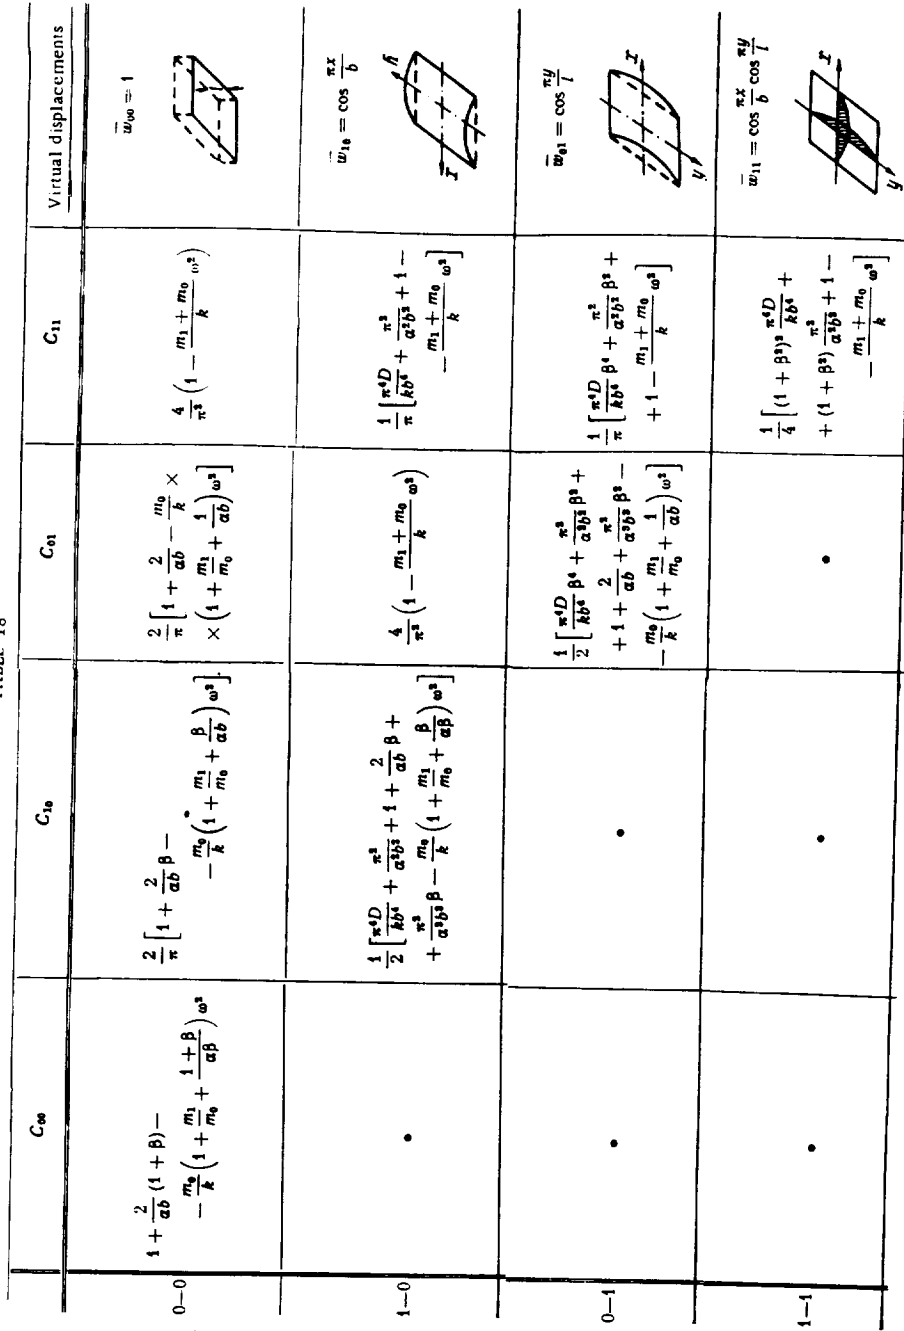 TABLE 18
C₀₀ C₁₀ C₀₁ C₁₁ Virtual displacements
0—0
1 + 2/(ab) (1 + β) —
— m₀/k (1 + m₁/m₀ + (1 + β)/(αβ)) ω²
2/π [1 + 2/(ab) β —
— m₀/k (1 + m₁/m₀ + β/(ab)) ω²].
2/π [1 + 2/(ab) — m₀/k ×
× (1 + m₁/m₀ + 1/(ab)) ω²]
4/π² (1 — (m₁ + m₀)/k ω²)
w̄₀₀ = 1
1—0
•
1/2 [π⁴D/(kb⁴) + π²/(α²b²) + 1 + 2/(ab) β +
+ π²/(α³b³) β — m₀/k (1 + m₁/m₀ + β/(αβ)) ω²]
4/π² (1 — (m₁ + m₀)/k ω²)
1/π [π⁴D/(kb⁴) + π²/(α²b²) + 1 —
— (m₁ + m₀)/k ω²]
w̄₁₀ = cos πx/b
x
0—1
•
•
1/2 [π⁴D/(kb⁴) β⁴ + π²/(α²b²) β² +
+ 1 + 2/(ab) + π²/(α³b³) β² —
— m₀/k (1 + m₁/m₀ + 1/(ab)) ω²]
1/π [π⁴D/(kb⁴) β⁴ + π²/(α²b²) β² +
+ 1 — (m₁ + m₀)/k ω²]
w̄₀₁ = cos πy/l
x
y
1—1
•
•
•
1/4 [(1 + β²)² π⁴D/(kb⁴) +
+ (1 + β²) π²/(α²b²) + 1 —
— (m₁ + m₀)/k ω²]
w̄₁₁ = cos πx/b cos πy/l
x
y